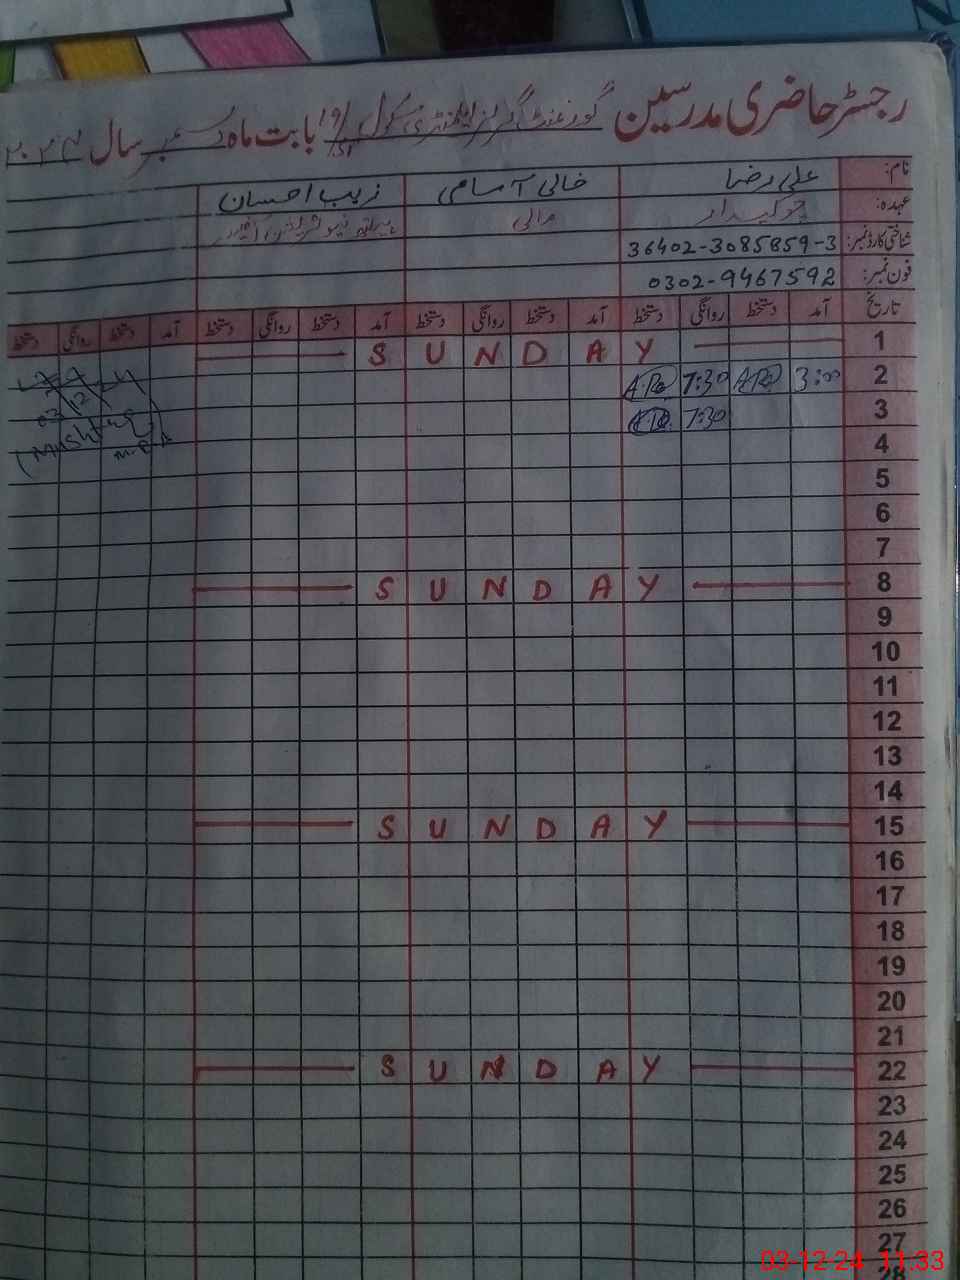 رجسٹر حاضری مدرسین گورنمنٹ گرلز ایلیمنٹری سکول بابت ماہ دسمبر سال ۲۰۲۴
نام: علی رضا خالی آسامی زیب احسان
عہدہ: چوکیدار مالی
شناختی کارڈ نمبر: 36402-3085859-3
فون نمبر: 0302-9467592
تاریخ آمد دستخط روانگی دستخط آمد دستخط روانگی دستخط آمد دستخط روانگی دستخط آمد دستخط روانگی دستخط
S U N D A Y 1
7:30 3:00 2
7:30 3
4
5
6
7
S U N D A Y 8
9
10
11
12
13
14
S U N D A Y 15
16
17
18
19
20
21
S U N D A Y 22
23
24
25
26
27
28
03-12-24 11:33